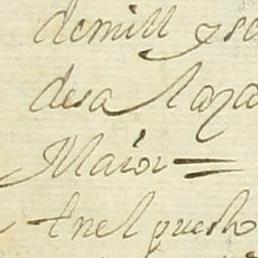 demill y se
desa laza
Maior =
Enel puesto